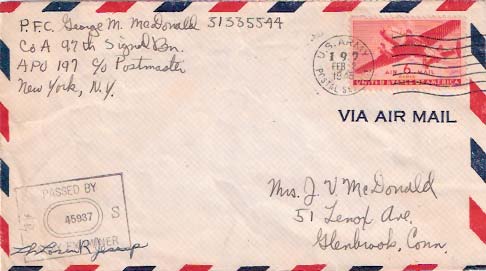 P.F.C. George M. MacDonald 31335544
Co A 97th Signal Bn.
APO 197 c/o Postmaster
New York, N.Y.
U.S. ARMY
197
FEB
AIR 6¢ MAIL
UNITED STATES OF AMERICA
VIA AIR MAIL
PASSED BY
45937 S
EXAMINER
Mrs. J. V. McDonald
51 Lenox Ave.
Glenbrook, Conn.